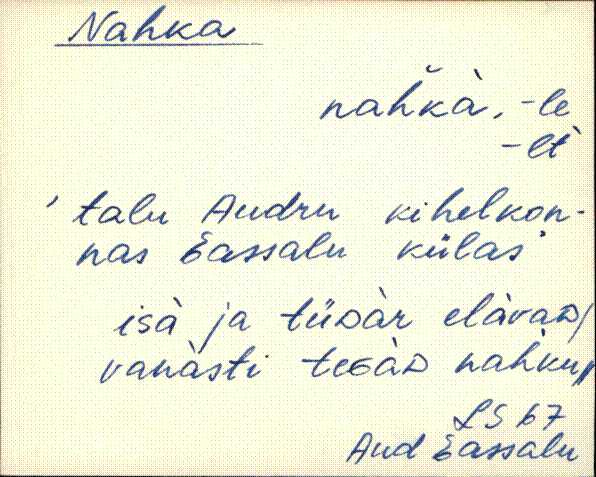 Nahka
nah̆kà, -le
-lt
'talu Audru kihelkon-
nas Eassalu külas'
isà ja tüᴅàr elàvaᴅ/
vanàsti teɢàᴅ nahku//
LS 67
Aud Eassalu